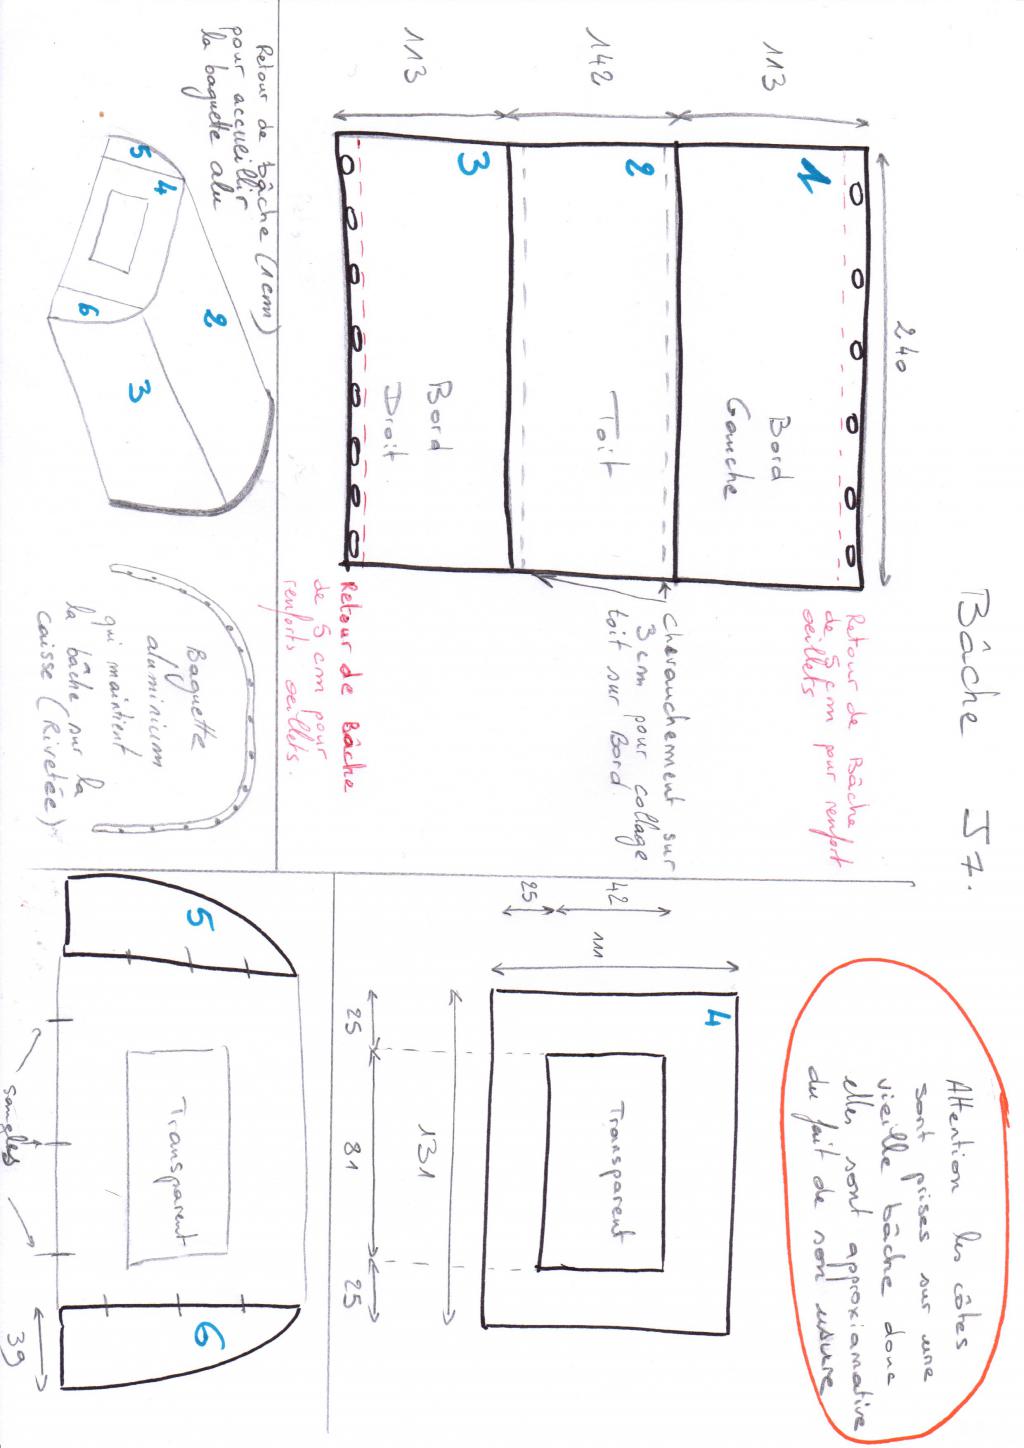 Bâche J7.
113
142
113
240
1
2
3
Bord
Gauche
Toit
Bord
Droit
Retour de Bâche
de 5 cm pour renfort
oeillets
chevauchement sur
3 cm pour collage
toit sur Bord.
Retour de Bâche
de 5 cm pour
renforts oeillets.
Retour de bâche (1cm)
pour accueillir
la baguette alu
5
4
6
2
3
Baguette
aluminium
qui maintient
la bâche sur la
caisse (Rivetée)
Attention les côtes
sont prises sur une
vieille bâche donc
elles sont approxiamative
du fait de son usure
4
42
25
111
Transparent
131
25
81
25
5
Transparent
6
sangles
39